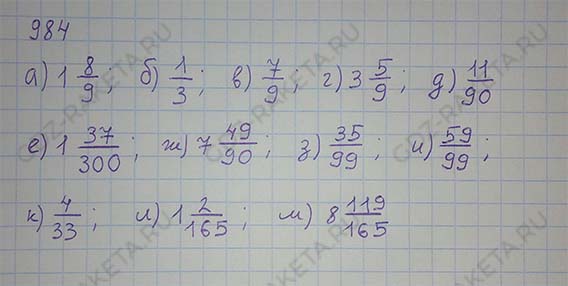 984
а) 1 8/9; б) 1/3; в) 7/9; г) 3 5/9; д) 11/90
е) 1 37/300; ж) 7 49/90; з) 35/99; и) 59/99;
к) 4/33; л) 1 2/165; м) 8 119/165
GDZ-RAKETA.RU